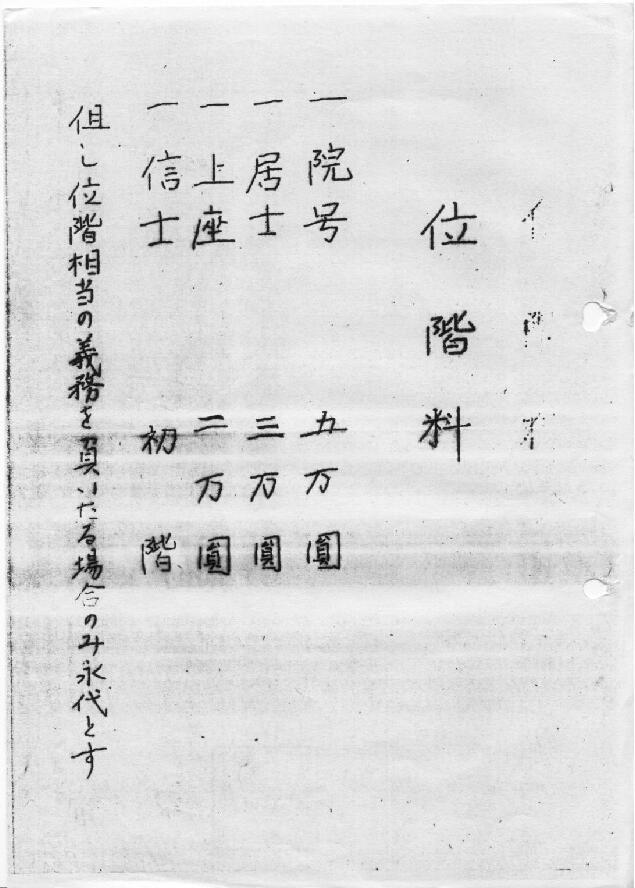 位階料
一 院号 五万圓
一 居士 三万圓
一 上座 二万圓
一 信士 初階
但し位階相当の義務を負いたる場合のみ永代とす